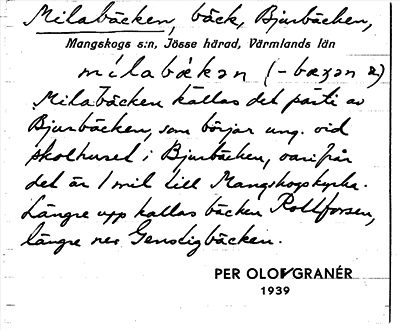 Milabäcken, bäck, Bjurbäcken,
Mangskogs s:n, Jösse härad, Värmlands län
mílabàkən (-bæxən a)
Milabäcken kallas det parti av
Bjurbäcken, som börjar ung. vid
skolhuset i Bjurbäcken, varifrån
det är 1 mil till Mangskogs kyrka.
Längre upp kallas bäcken Rollforsen,
längre ner Gensligbäcken.
PER OLOV GRANÉR
1939